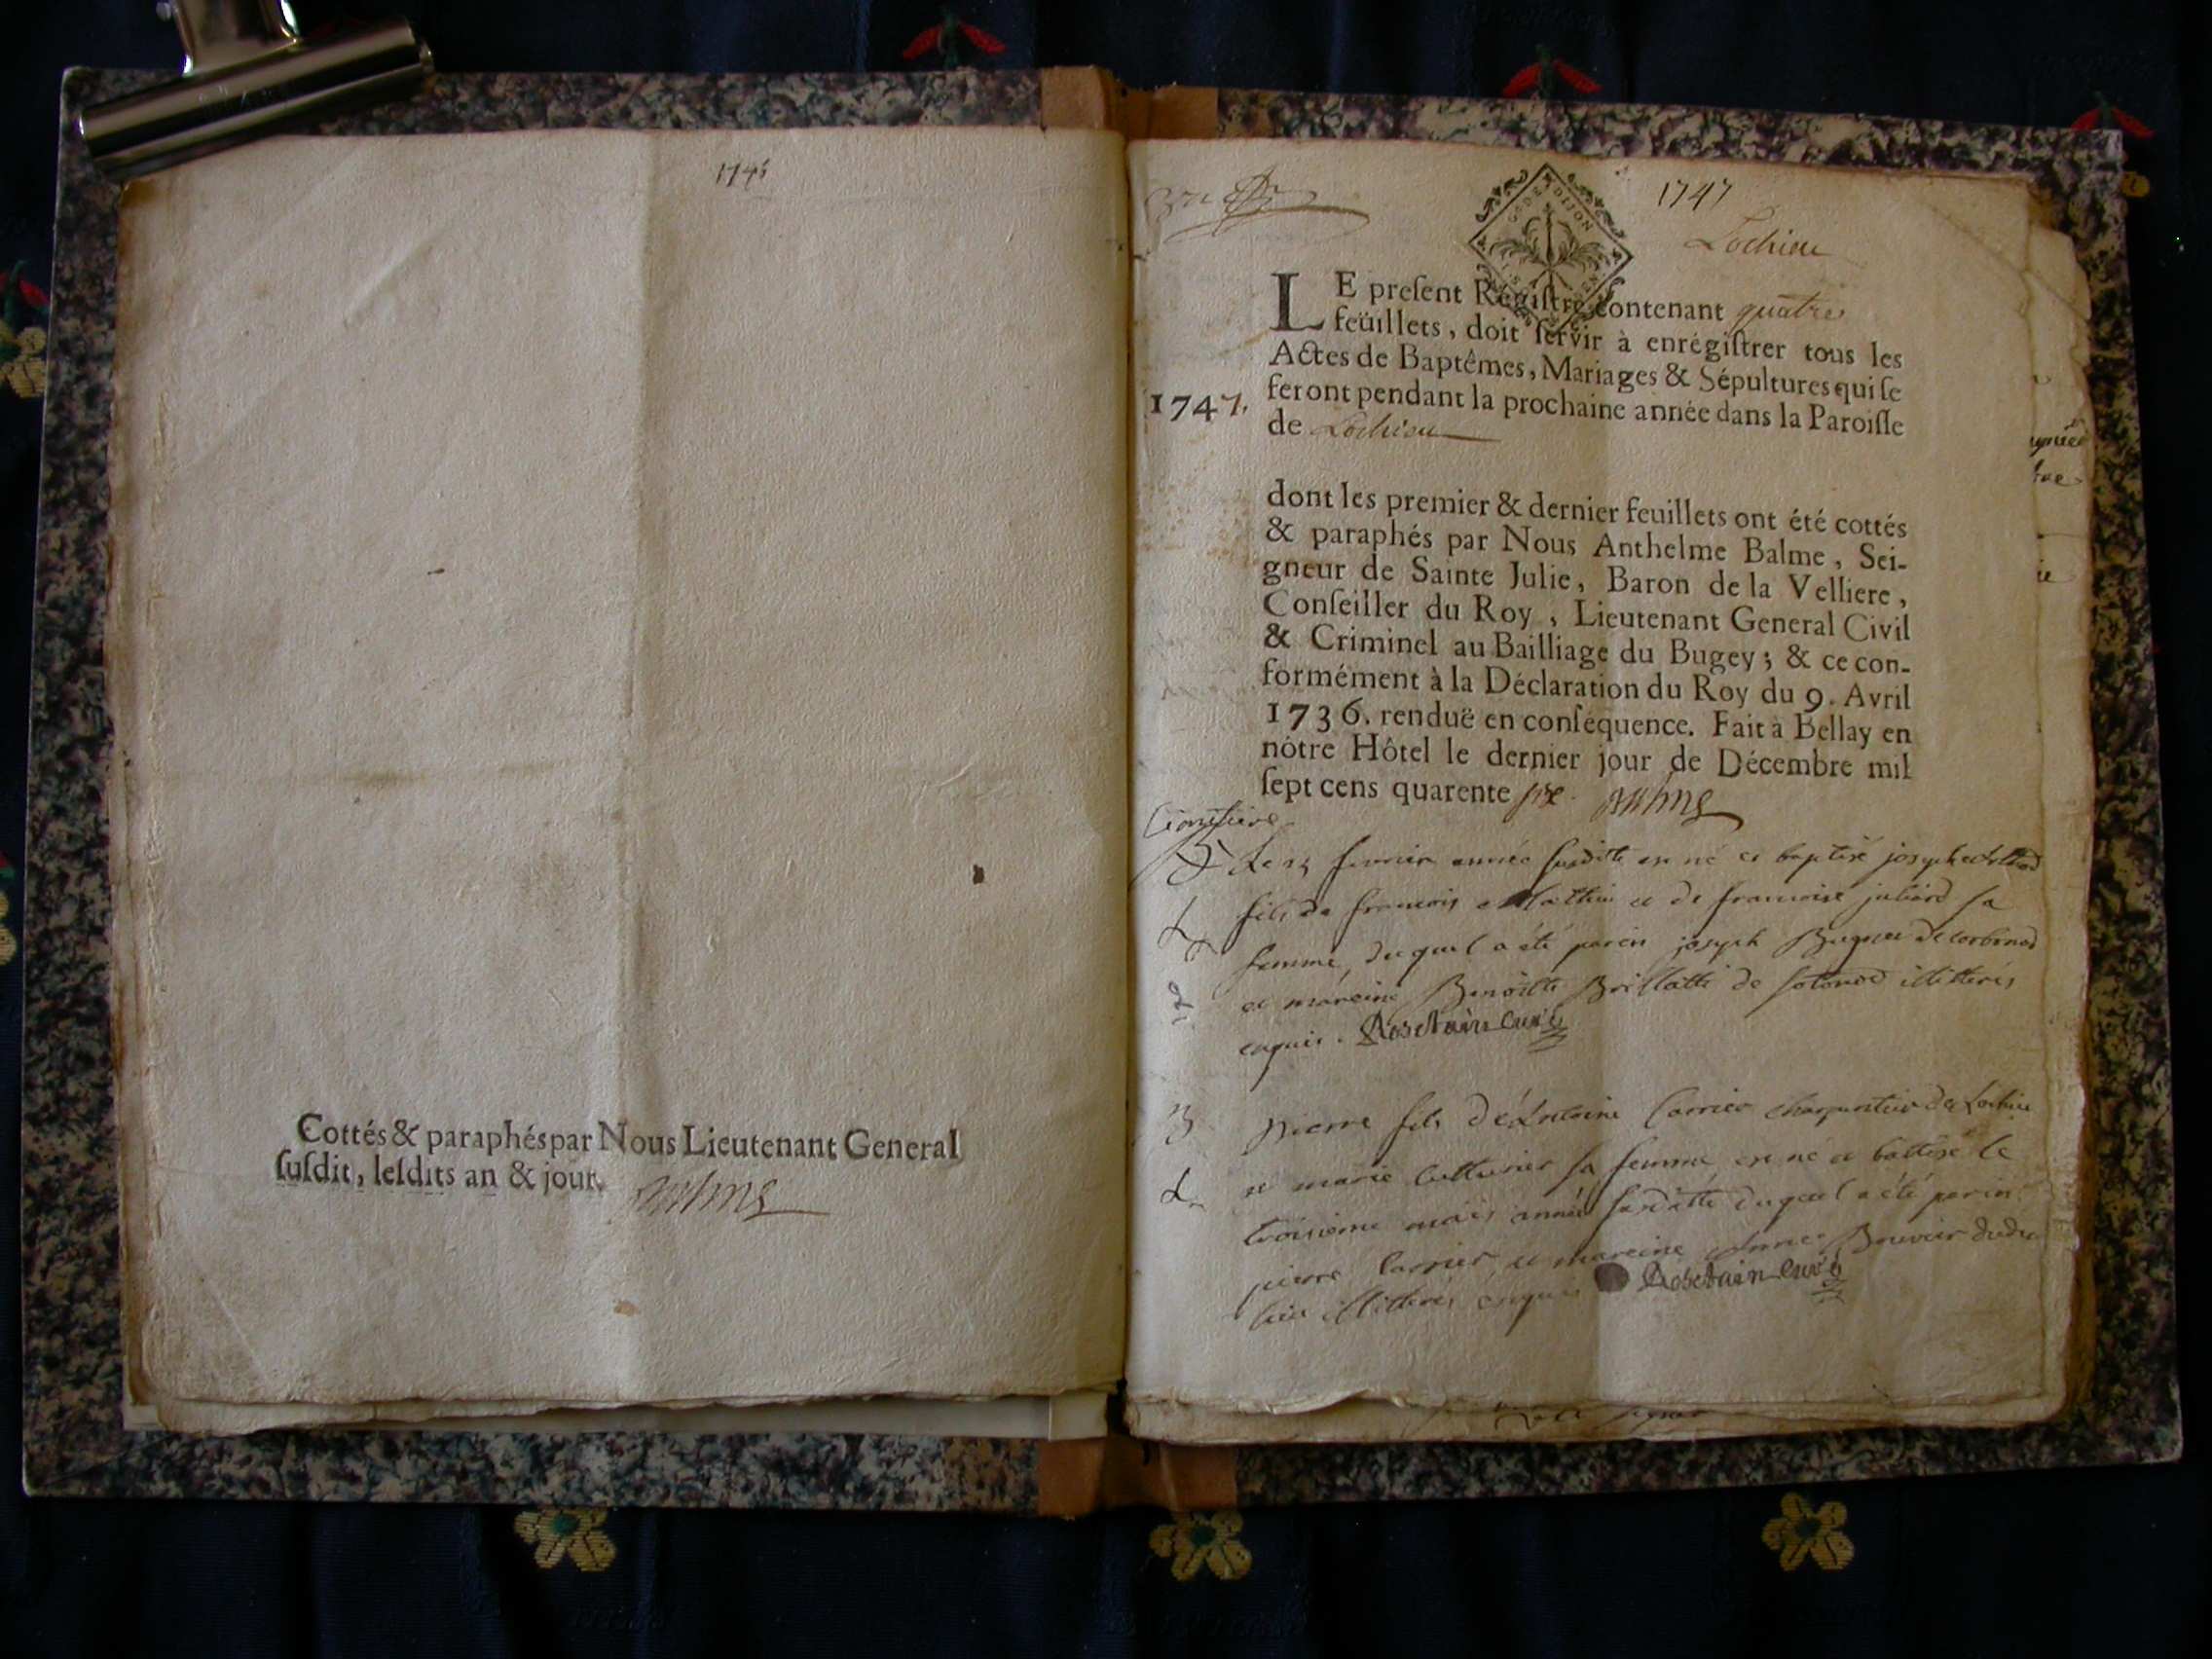 1746
Cottés & paraphés par Nous Lieutenant General
ſuſdit, leſdits an & jour.
Balme
1747
Lochieu
GEN. DE DIJON
LE preſent Régiſtre contenant quatre
feüillets, doit ſervir à enrégiſtrer tous les
Actes de Baptêmes, Mariages & Sépultures qui ſe
feront pendant la prochaine année dans la Paroiſſe
1747.
de Lochieu
dont les premier & dernier feuillets ont été cottés
& paraphés par Nous Anthelme Balme, Sei-
gneur de Sainte Julie, Baron de la Velliere,
Conſeiller du Roy, Lieutenant General Civil
& Criminel au Bailliage du Bugey; & ce con-
formément à la Déclaration du Roy du 9. Avril
1736. renduë en conſéquence. Fait à Bellay en
nôtre Hôtel le dernier jour de Décembre mil
ſept cens quarente six. Balme
Le fevrier année susditte est né et baptisé joseph
fils de francois et de francoise juliard sa
femme, duquel a été parin joseph de corbonod
et mareine Benoitte de sotonod illitterés
enquis. Rostain curé
Pierre fils d'Antoine Carrier charpentier de Lochieu
et marie sa femme est né et battisé le
troisieme mars année susditte duquel a été parin
pierre Carrier et mareine Anne Bouvier dudit
lieu illitterés enquis Rostain curé